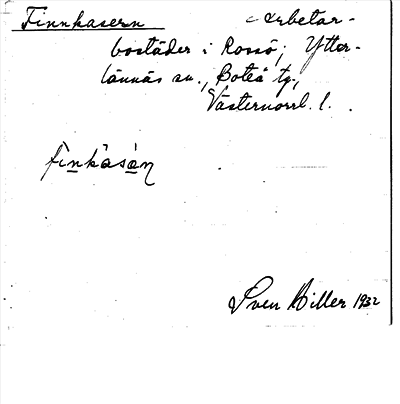 Finnkasern = Arbetar-
bostäder i Rossö; Ytter-
lännäs sn., Boteå tg.,
Västernorrl. l.
finkàsàn
Sven Hiller 1932